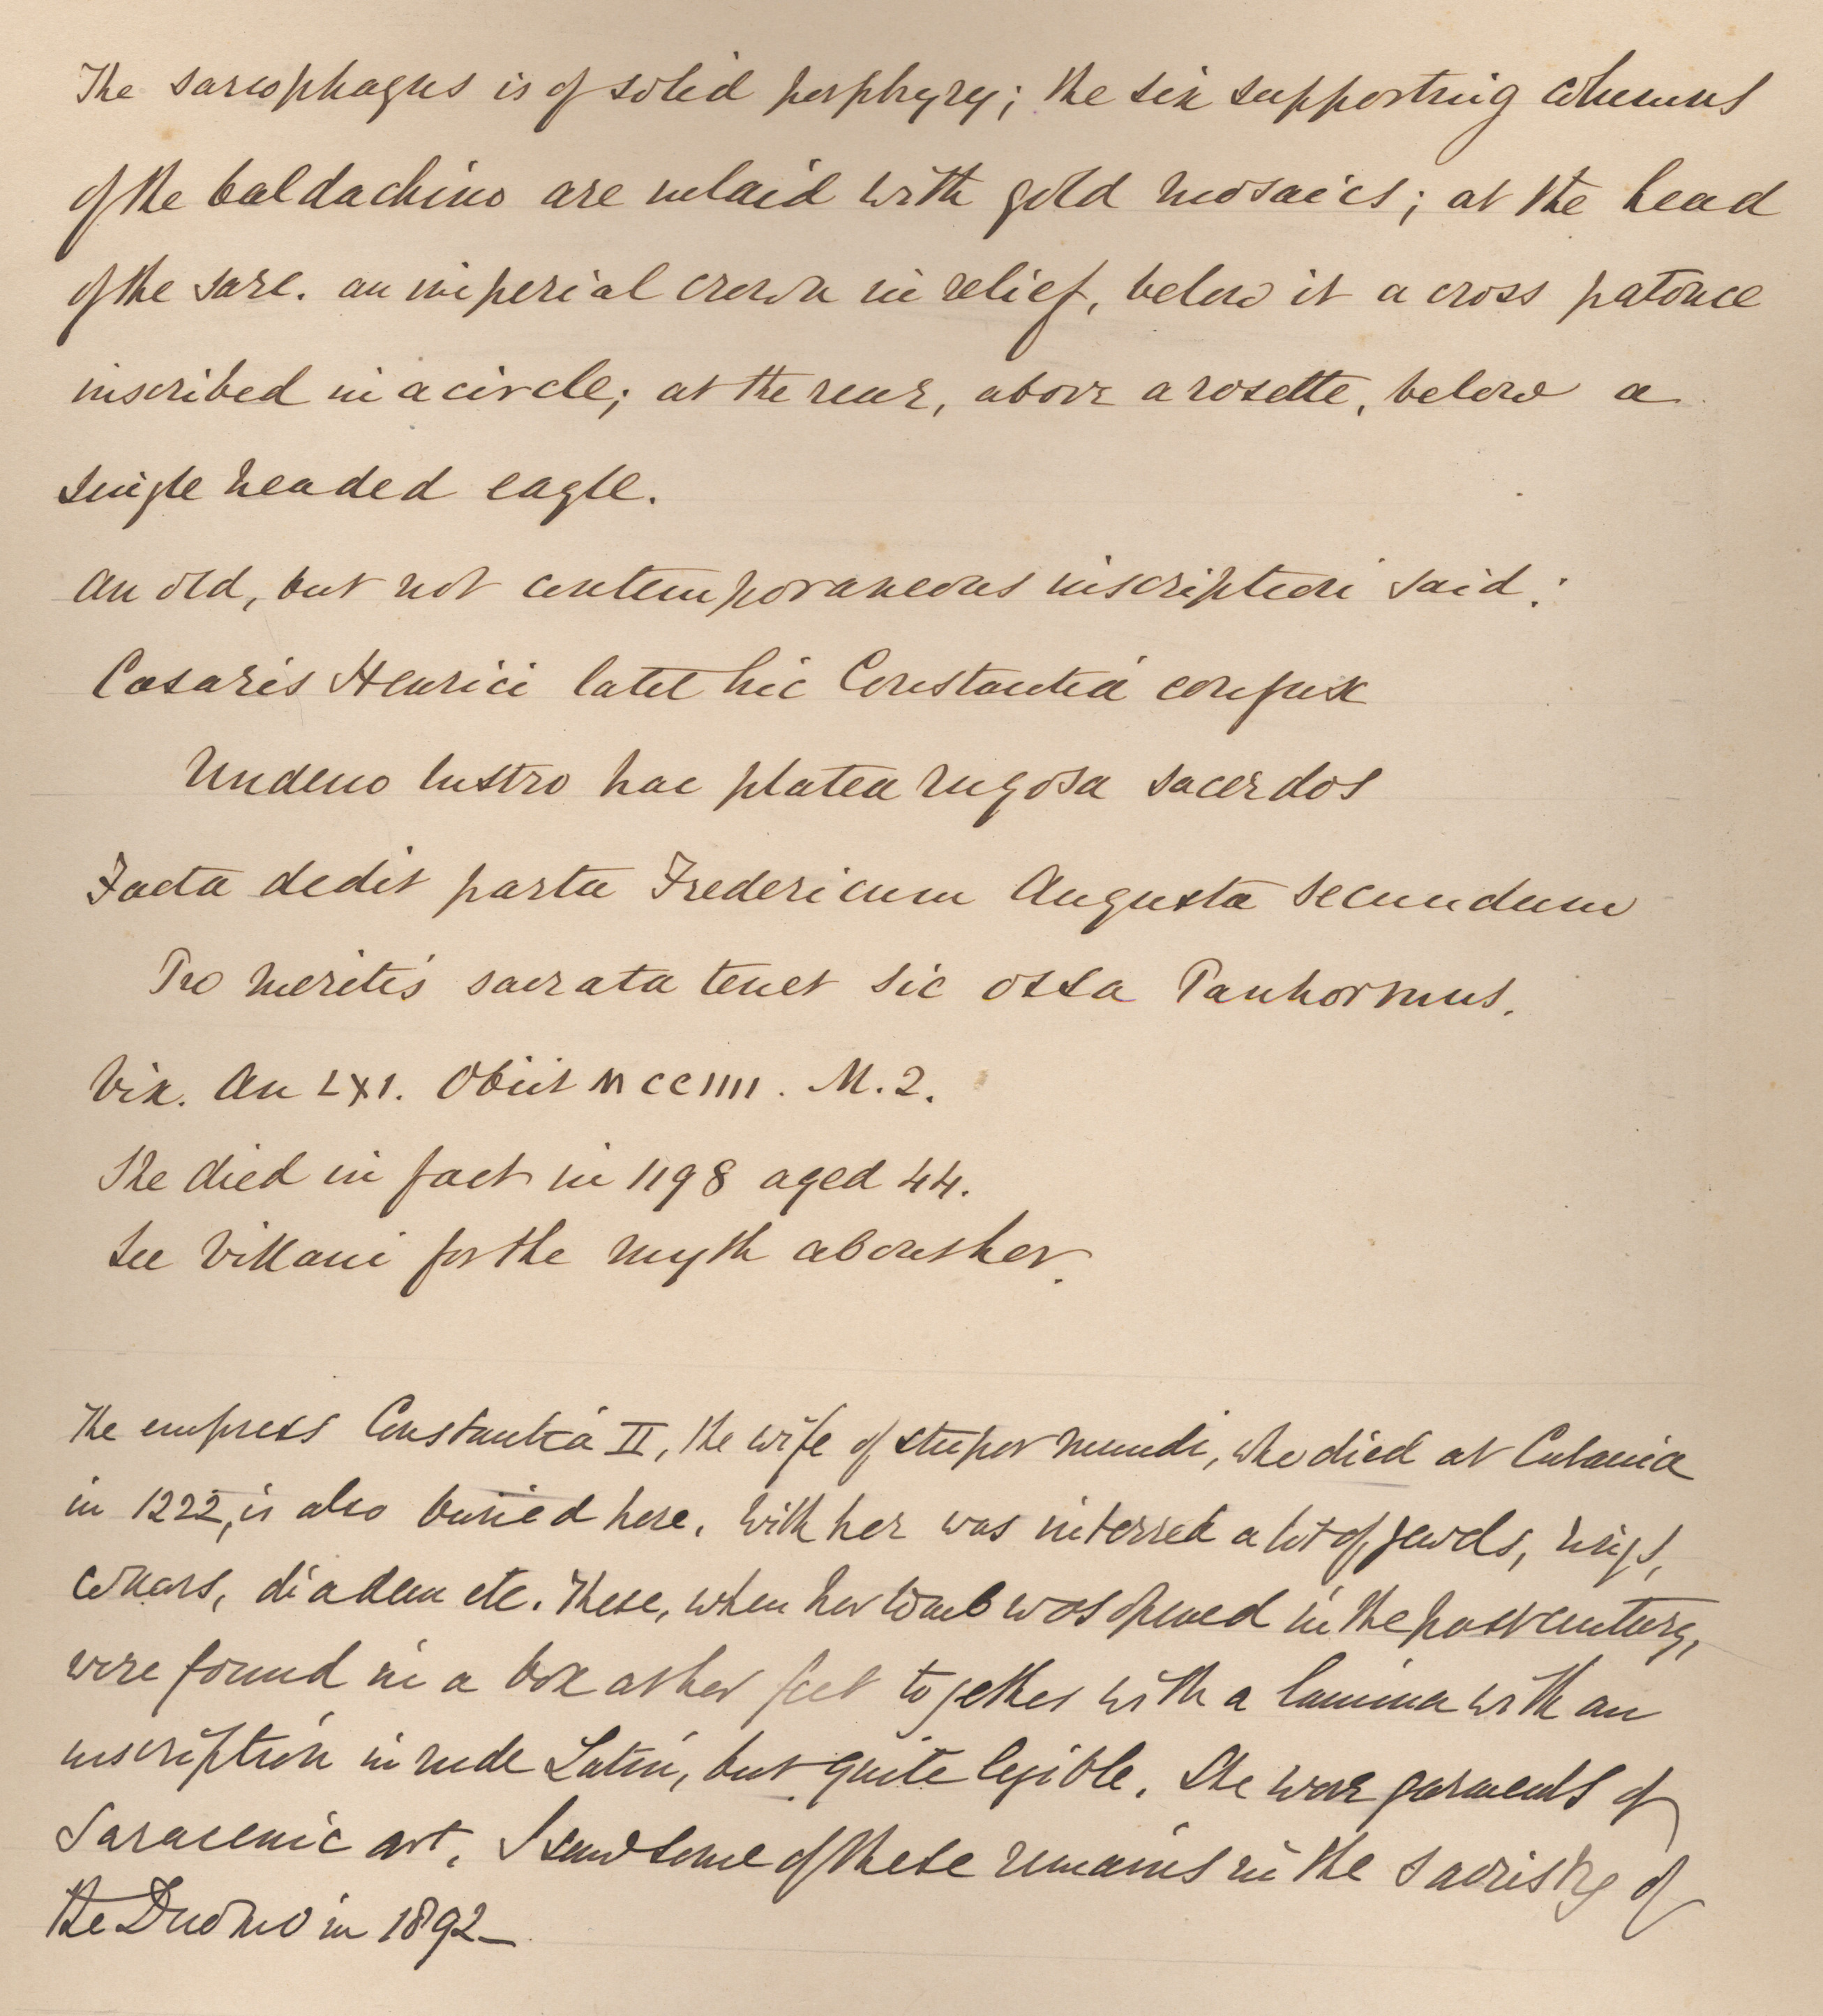 The sarcophagus is of solid porphyry; the six supporting columns
of the baldachino are inlaid with gold mosaics; at the head
of the sarc. an imperial crown in relief, below it a cross patonce
inscribed in a circle; at the rear, above a rosette, below a
single headed eagle.
An old, but not contemporaneous inscription said:
Casaris Henrici latet hic Constantia conjux
Undeno lustro hac platea rugosa sacerdos
Facta dedit partu Fredericum Augusta secundum
Pro meritis sacrata tenet sic ossa Panhormus.
Vix. An LXI. Obiit MCCIIII. M. 2.
She died in fact in 1198 aged 44.
See Villani for the myth about her.
The empress Constantia II, the wife of stupor mundi, who died at Catania
in 1222, is also buried here. With her was interred a lot of jewels, rings,
collars, diadem etc. These, when her tomb was opened in the past century,
were found in a box at her feet together with a lamina with an
inscription in rude Latin, but quite legible. She wore garments of
Saracenic art. I saw some of these remains in the sacristy of
the Duomo in 1892_